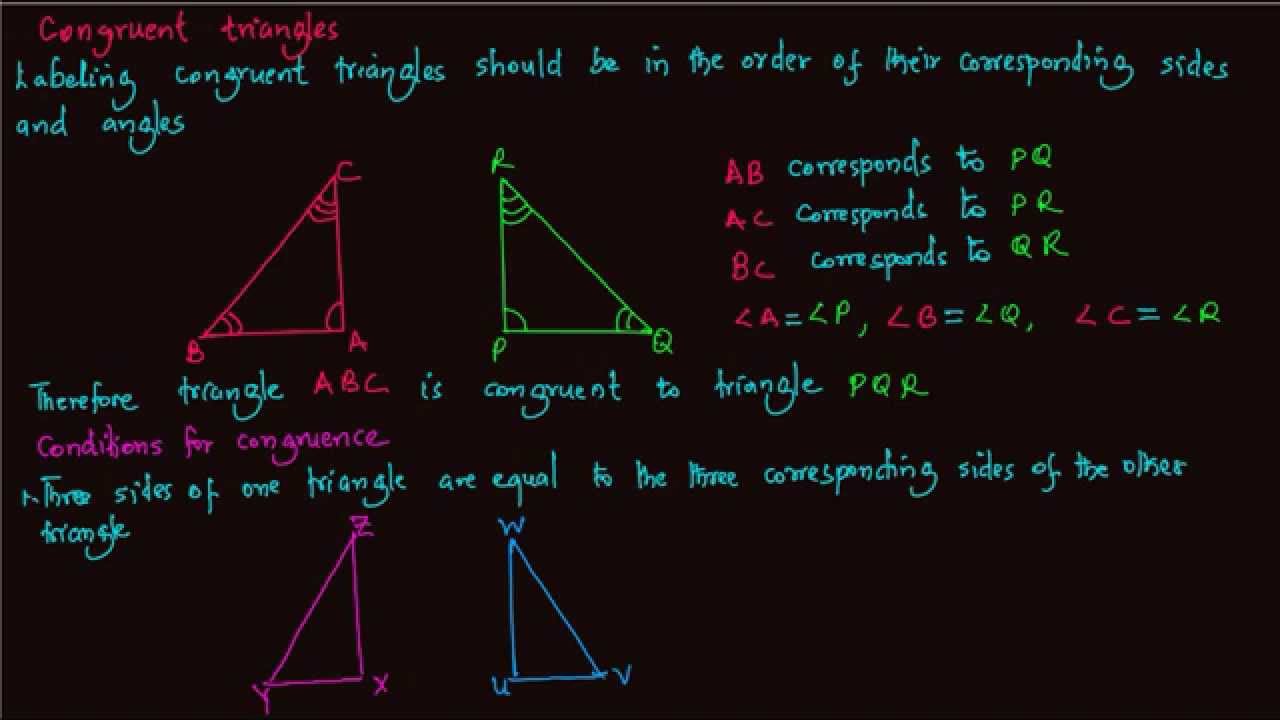 Congruent triangles
Labeling congruent triangles should be in the order of their corresponding sides
and angles
C
B
A
R
P
Q
AB corresponds to PQ
AC corresponds to PR
BC corresponds to QR
∠A=∠P, ∠B=∠Q, ∠C=∠R
Therefore triangle ABC is congruent to triangle PQR
Conditions for congruence
1. Three sides of one triangle are equal to the three corresponding sides of the other
triangle
Z
Y
X
W
U
V